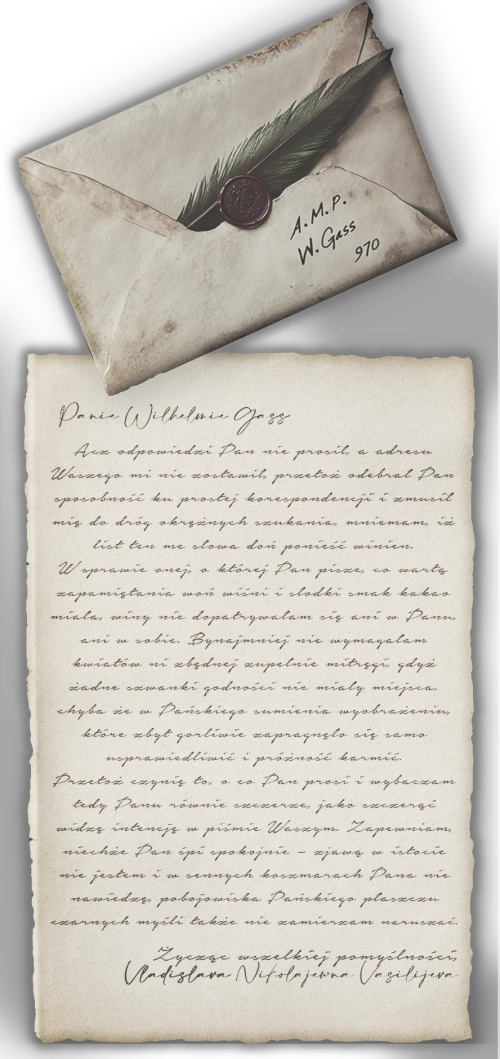 A.M.P.
W. Gass
970
Panie Wilhelmie Gass
Acz odpowiedzi Pan nie prosił, a adresu
Waszego mi nie zostawił, przetoż odebrał Pan
sposobność ku prostej korespondencji i zmusił
mię do dróg okrężnych szukania, mniemam, iż
list ten me słowa doń ponieść winien.
W sprawie onej, o której Pan pisze, co wartą
zapamiętania woń wiśni i słodki smak kakao
miała, winy nie dopatrywałam się ani w Panu,
ani w sobie. Bynajmniej nie wymagałam
kwiatów ni zbędnej zupełnie mitręgi, gdyż
żadne szwanki godności nie miały miejsca,
chyba że w Pańskiego sumienia wyobrażeniu,
które zbyt gorliwie zapragnęło się samo
usprawiedliwić i próżność karmić.
Przetoż czynię to, o co Pan prosi i wybaczam
tedy Panu równie szczerze, jako szczerość
widzę intencję w piśmie Waszym. Zapewniam,
niechże Pan śpi spokojnie – zjawą w istocie
nie jestem i w sennych koszmarach Pana nie
nawiedzę, pobojowiska Pańskiego płaszczu
czarnych myśli także nie zamierzam naruszać.
Życząc wszelkiej pomyślności,
Vladislava Nikolajewna Vasilijeva